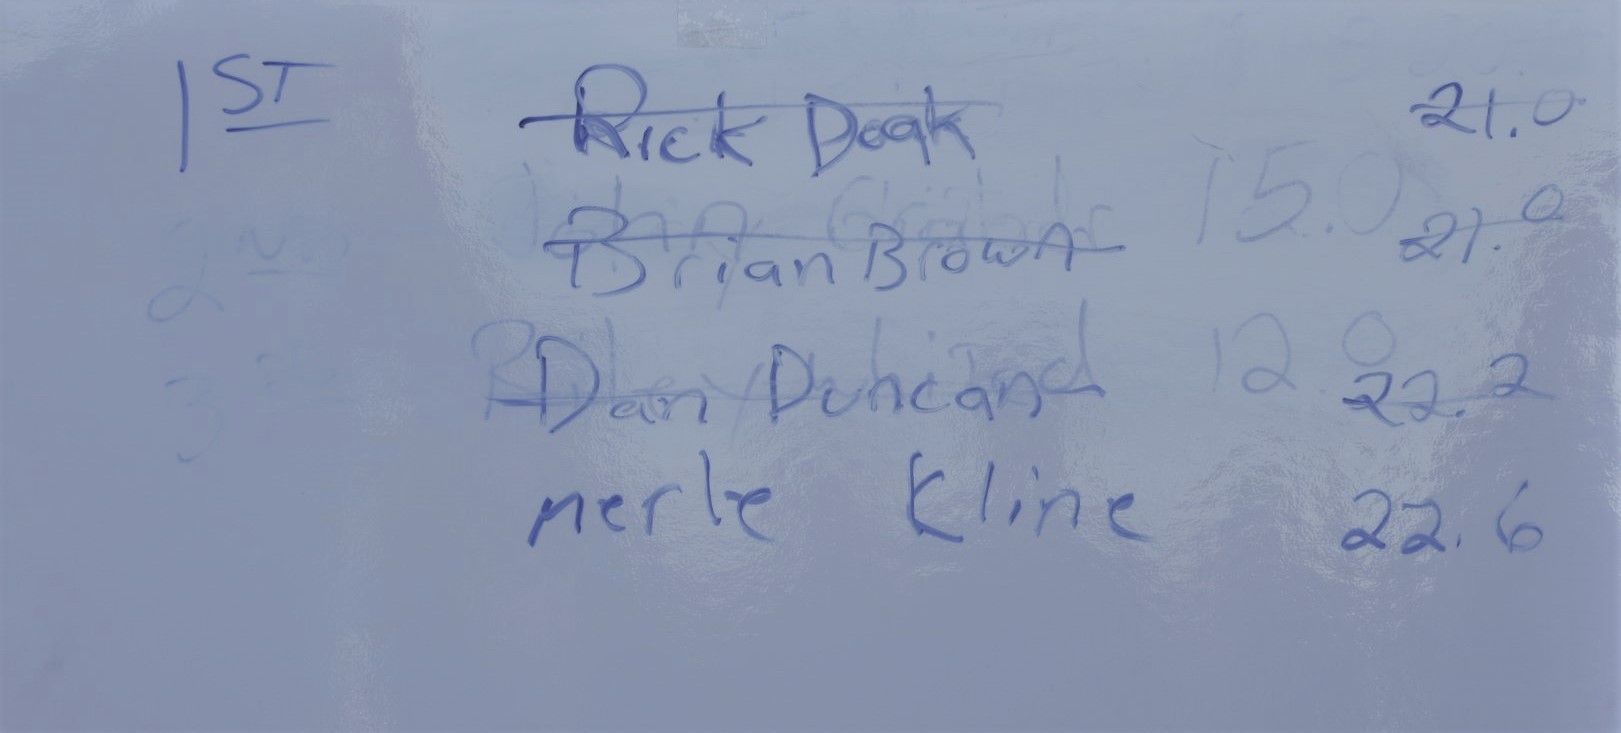 1ST Rick Doak 21.0
Brian Brown 21.0
Dan Duncan 22.2
merle Kline 22.6